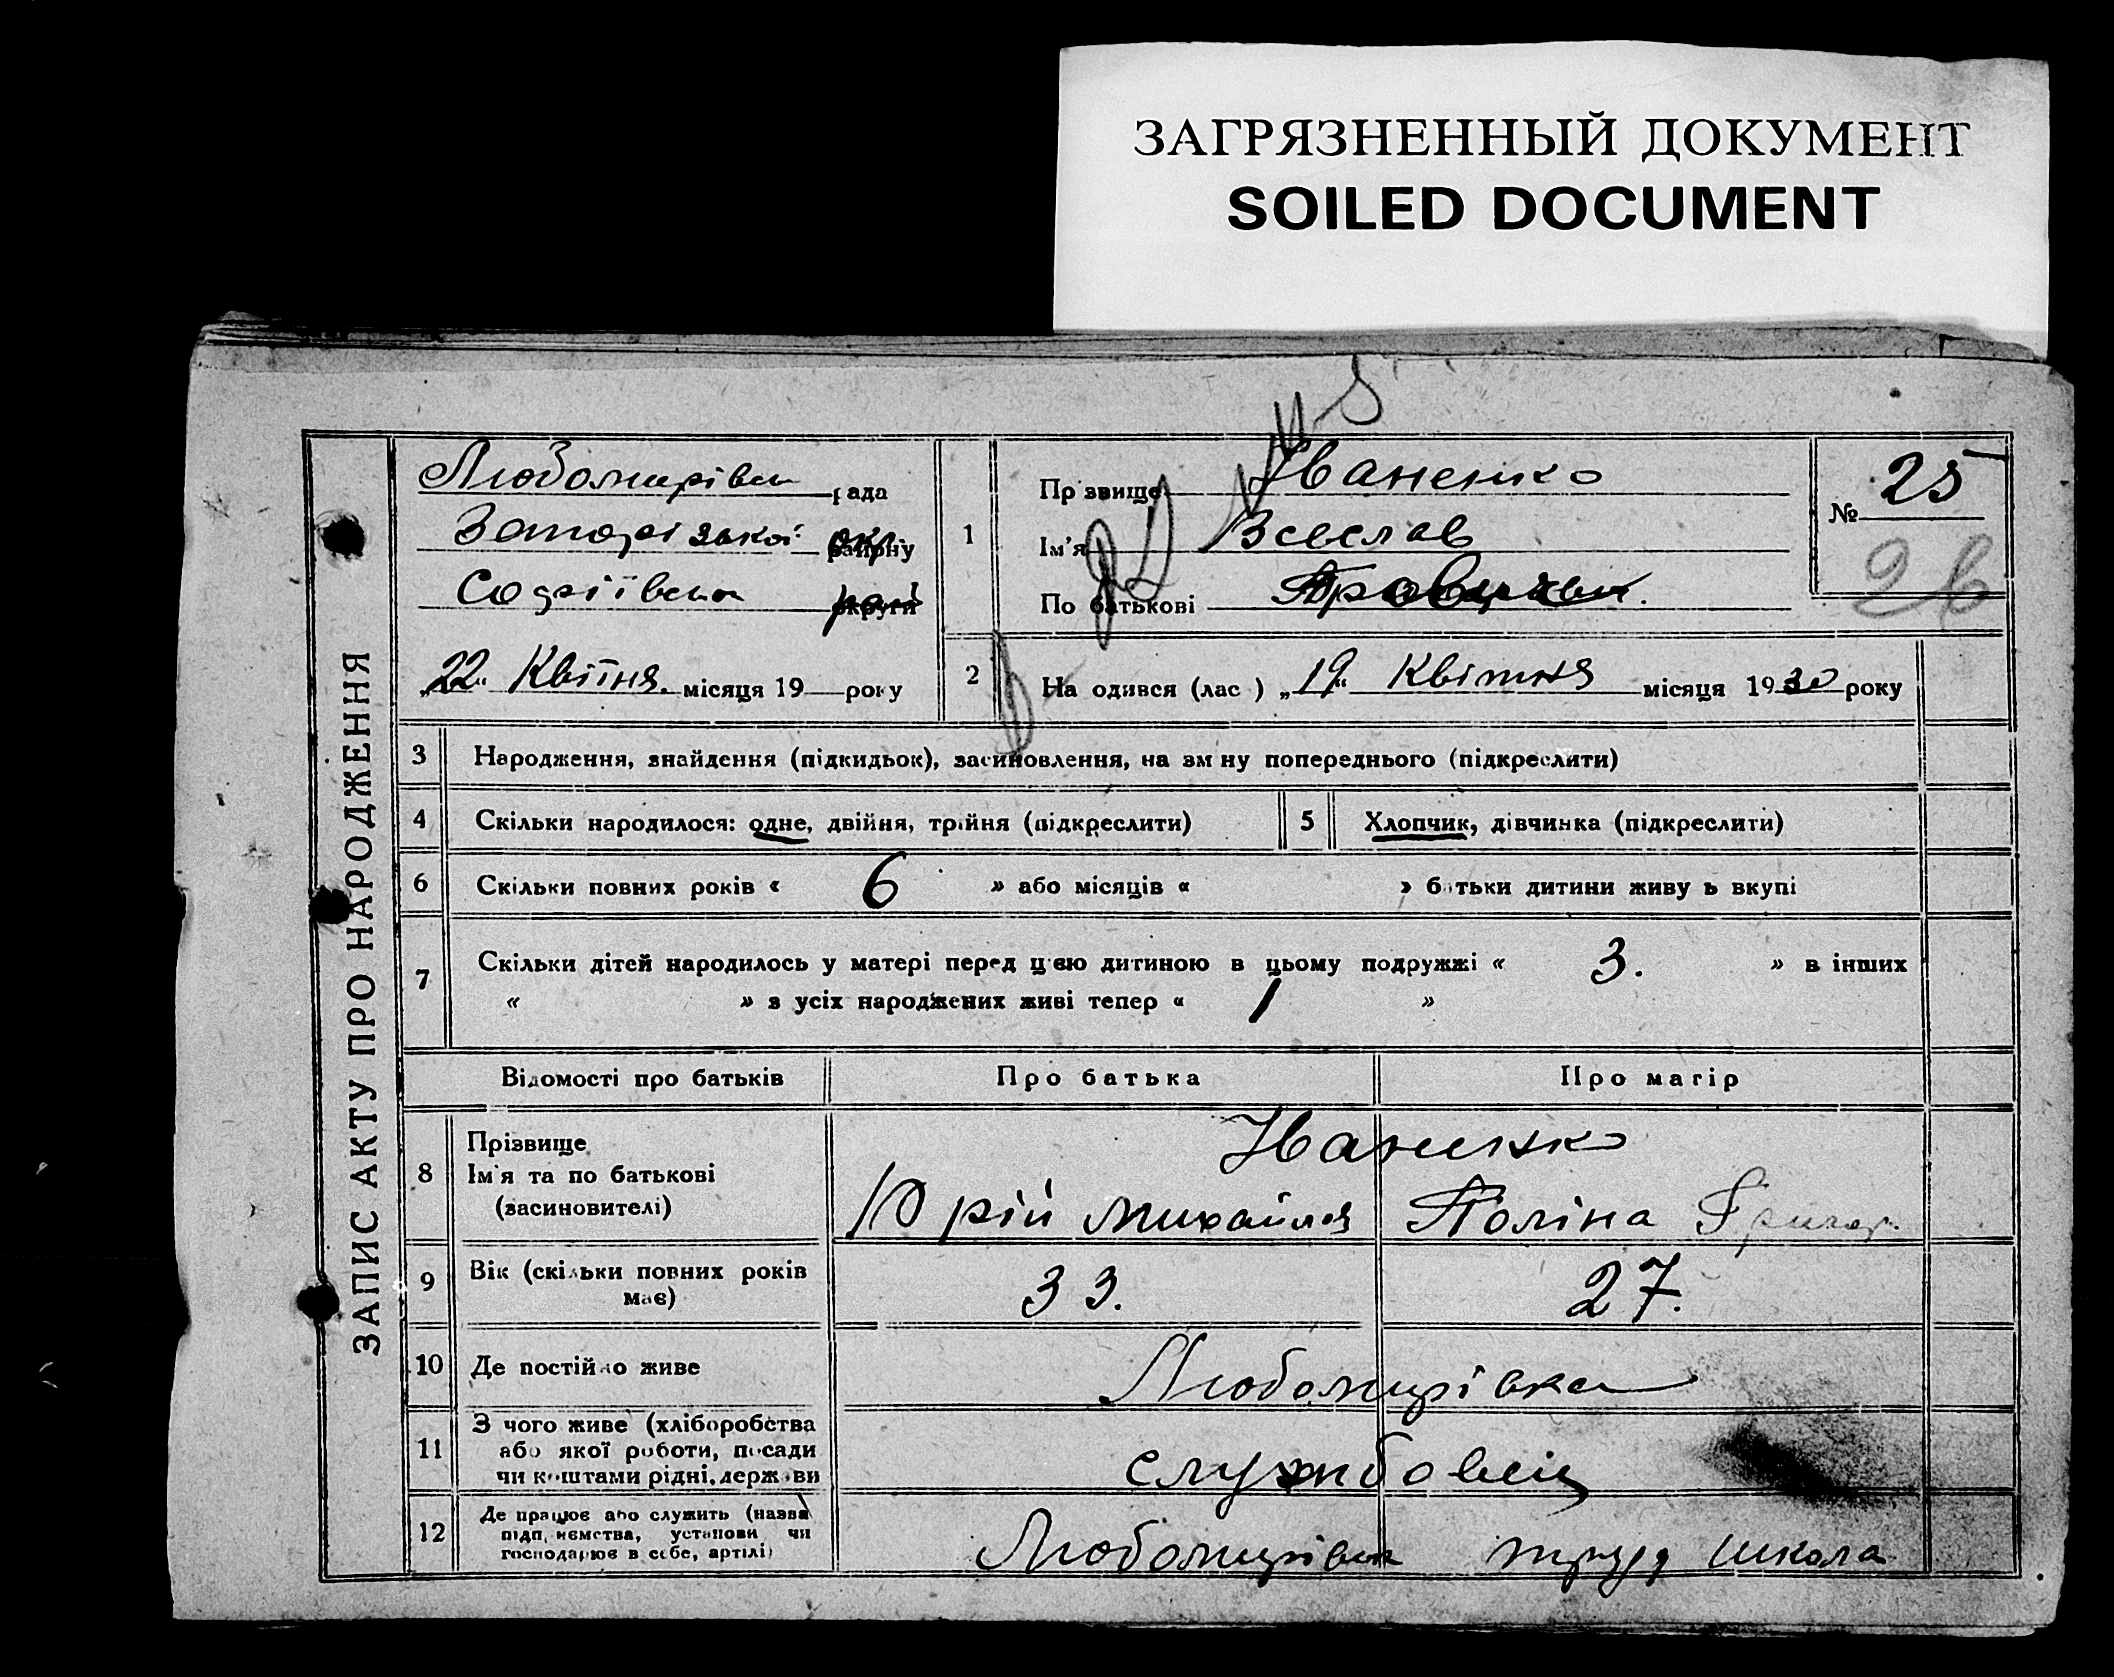 ЗАГРЯЗНЕННЫЙ ДОКУМЕНТ
SOILED DOCUMENT
ЗАПИС АКТУ ПРО НАРОДЖЕННЯ
Любомирівськ рада
Запорізької окр району
Софіївськ рай округи
„22“ Квітня місяця 19 року
1 Прізвище Іваненко
Ім'я Всеслав
По батькові
№ 25
26
2 Народився (лась) „19“ Квітня місяця 1930 року
3 Народження, знайдення (підкидьок), засиновлення, на зміну попереднього (підкреслити)
4 Скільки народилося: одне, двійня, трійня (підкреслити) 5 Хлопчик, дівчинка (підкреслити)
6 Скільки повних років « 6 » або місяців « » батьки дитини живуть вкупі
7 Скільки дітей народилось у матері перед цією дитиною в цьому подружжі « 3. » в інших
« » з усіх народжених живі тепер « 1 »
Відомості про батьків Про батька Про матір
8 Прізвище Іваненко
Ім'я та по батькові Юрій Михайлов Поліна Григор.
(засиновителі)
9 Вік (скільки повних років має) 33. 27.
10 Де постійно живе Любомирівка
11 З чого живе (хліборобства
або якої роботи, посади
чи коштами рідні, держави службовець
12 Де працює або служить (назва
підприємства, установи чи
господарює в себе, артілі) Любомирівськ труд школа